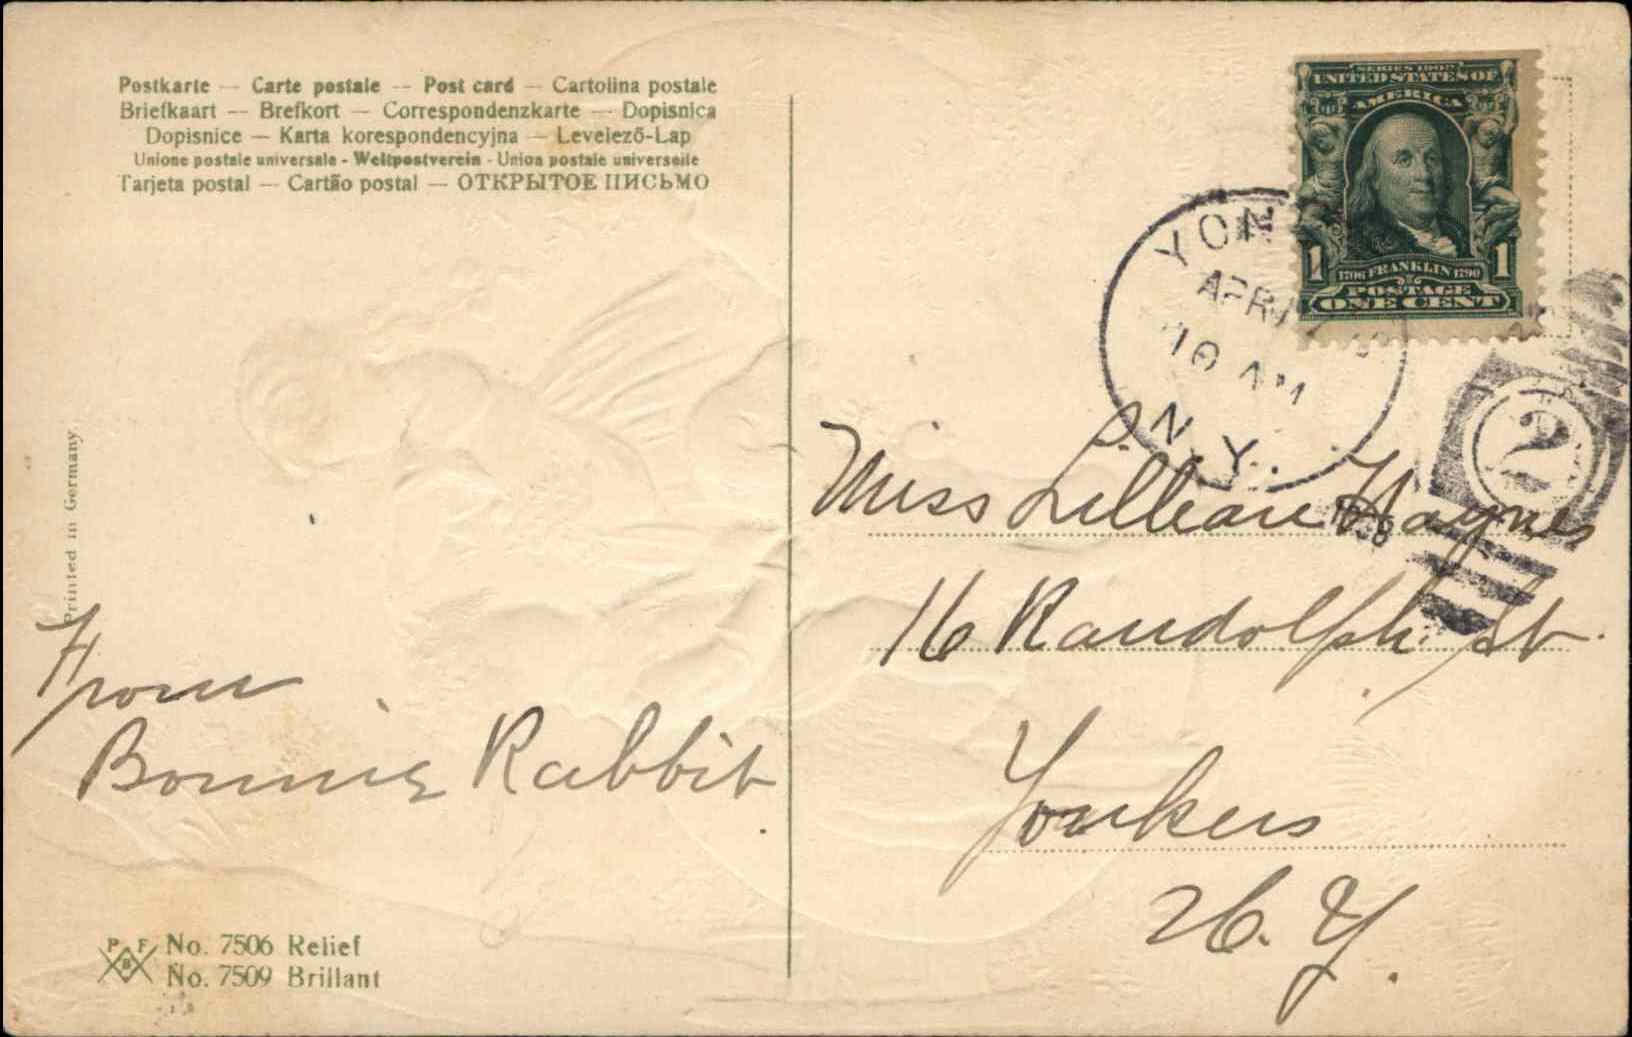 Postkarte — Carte postale — Post card — Cartolina postale
Briefkaart — Brefkort — Correspondenzkarte — Dopisnica
Dopisnice — Karta korespondencyjna — Levelező-Lap
Unione postale universale - Weltpostverein - Union postale universelle
Tarjeta postal — Cartão postal — ОТКРЫТОЕ ПИСЬМО
Printed in Germany
From
Bonnie Rabbit
P F
B
No. 7506 Relief
No. 7509 Brillant
SERIES 1902
UNITED STATES OF
AMERICA
1 1
1706 FRANKLIN 1790
POSTAGE
ONE CENT
YON
APR
10 AM
N. Y.
1908
2
Miss Lillian Haynes
16 Randolph St.
Yonkers
N. Y.